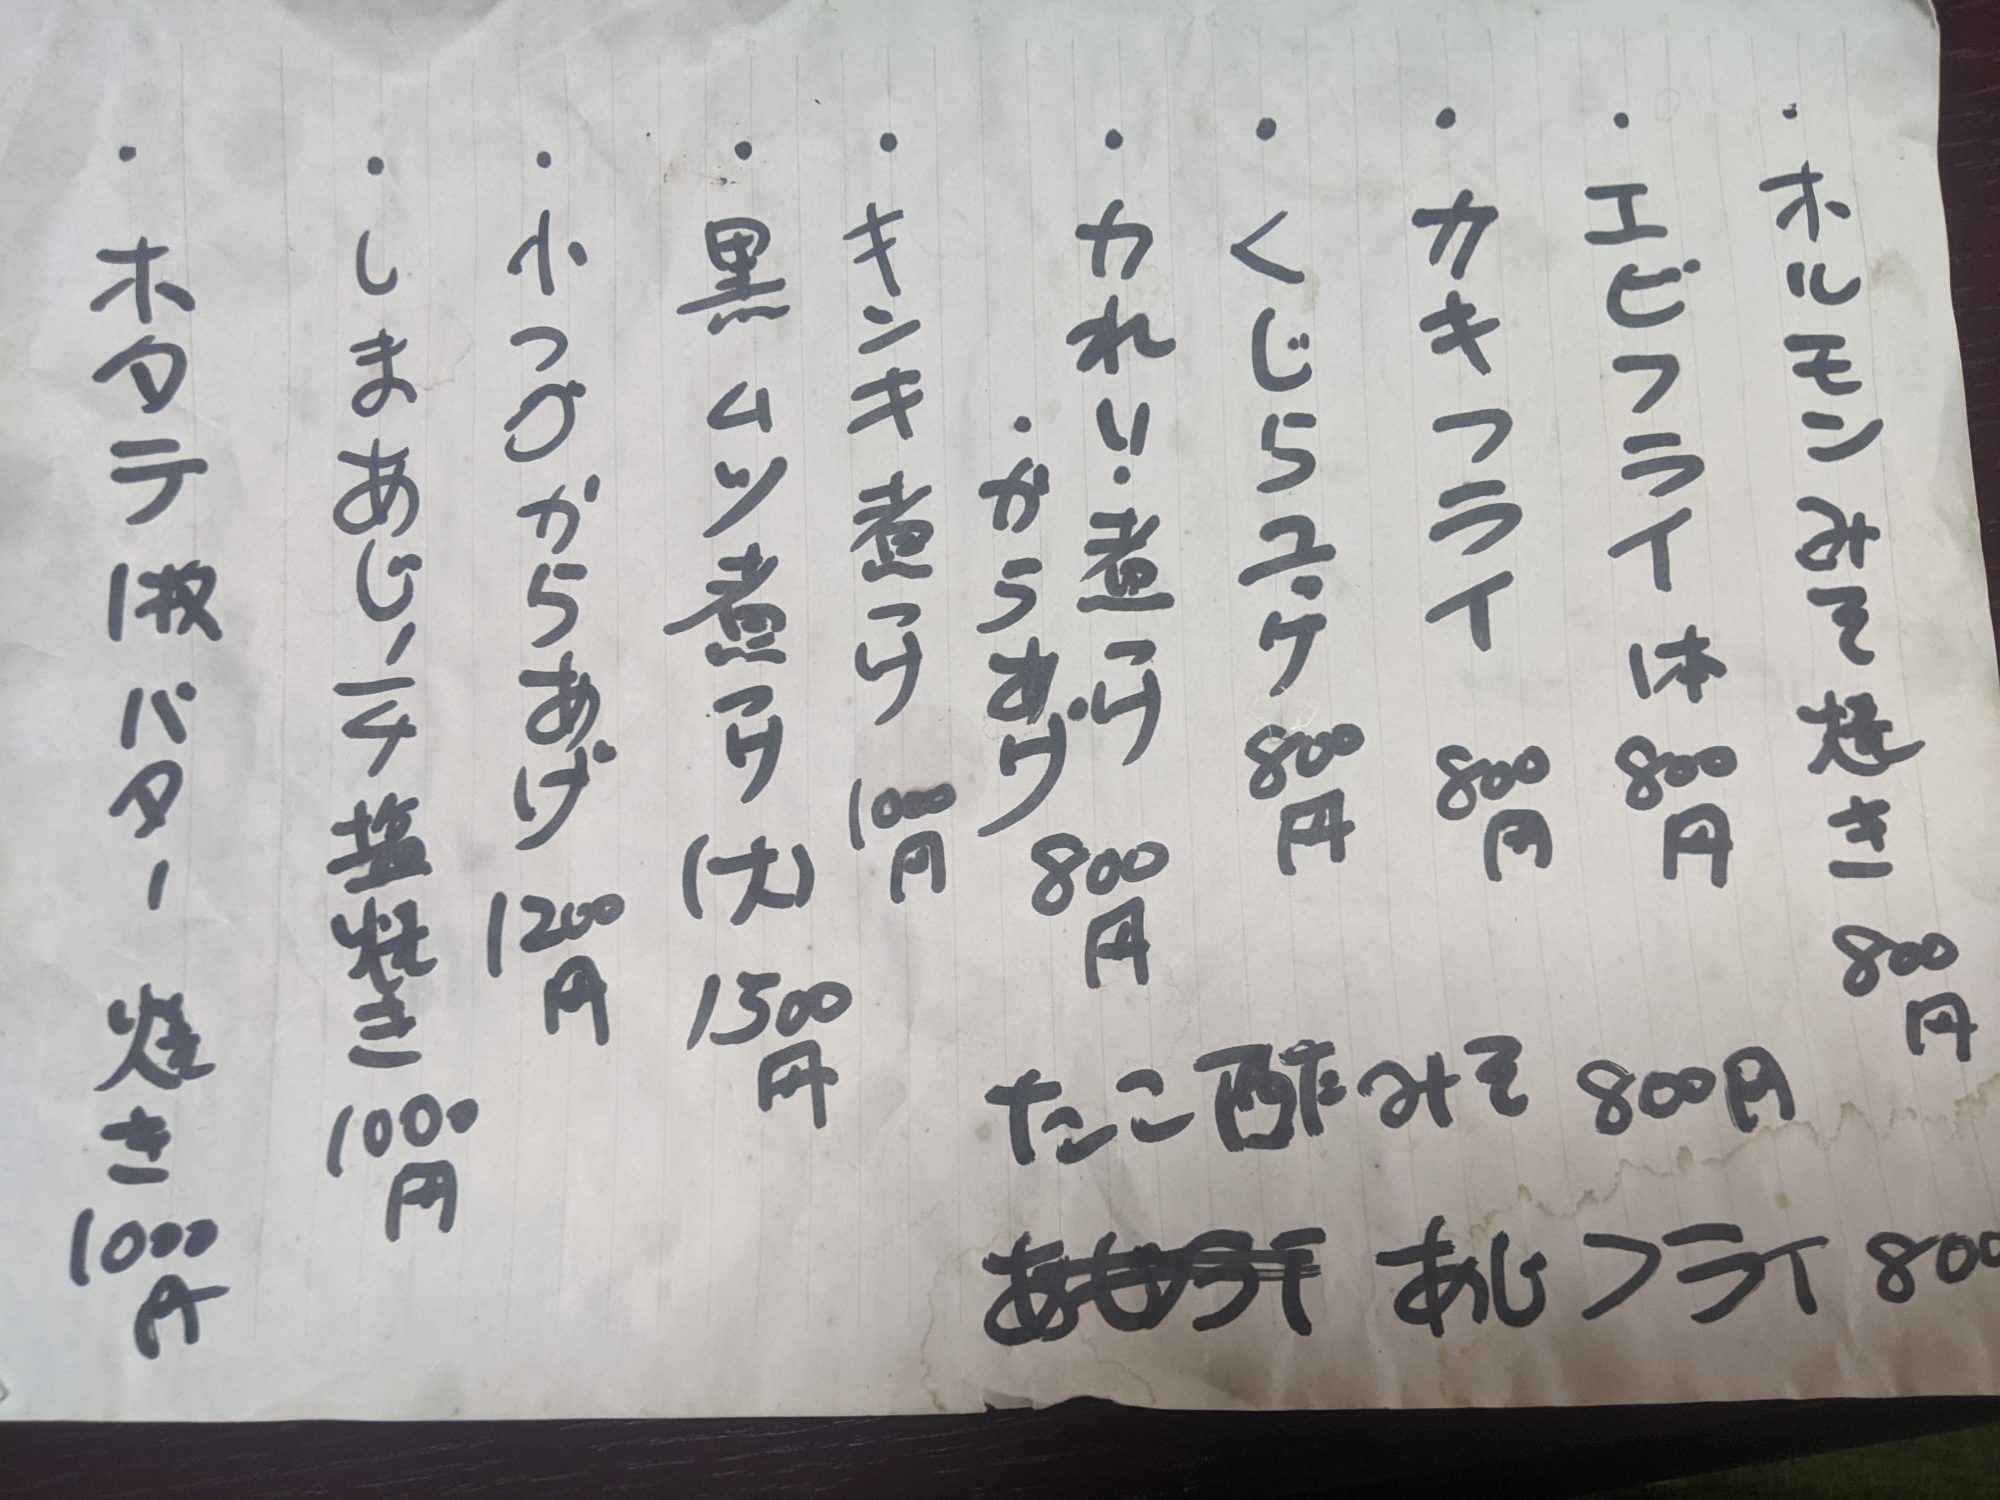 ・ホルモンみそ焼き 800円
・エビフライ 1体 800円
・カキフライ 800円
・くじらユッケ 800円
・カれい・煮つけ
・からあげ 800円
・キンキ煮つけ 1000円
・黒ムツ煮つけ(大) 1500円
・小つぶからあげ 1200円
・しまあじ 塩焼き 1000円
・ホタテ1枚バター焼き 1000円
たこ酢みそ 800円
あじフライ 800